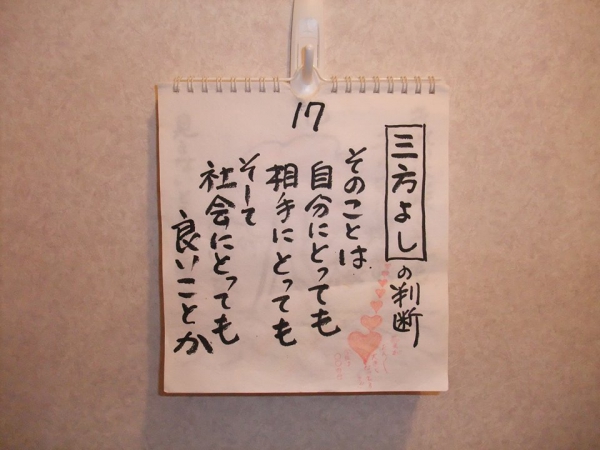 17
三方よしの判断
そのことは
自分にとっても
相手にとっても
そして
社会にとっても
良いことか